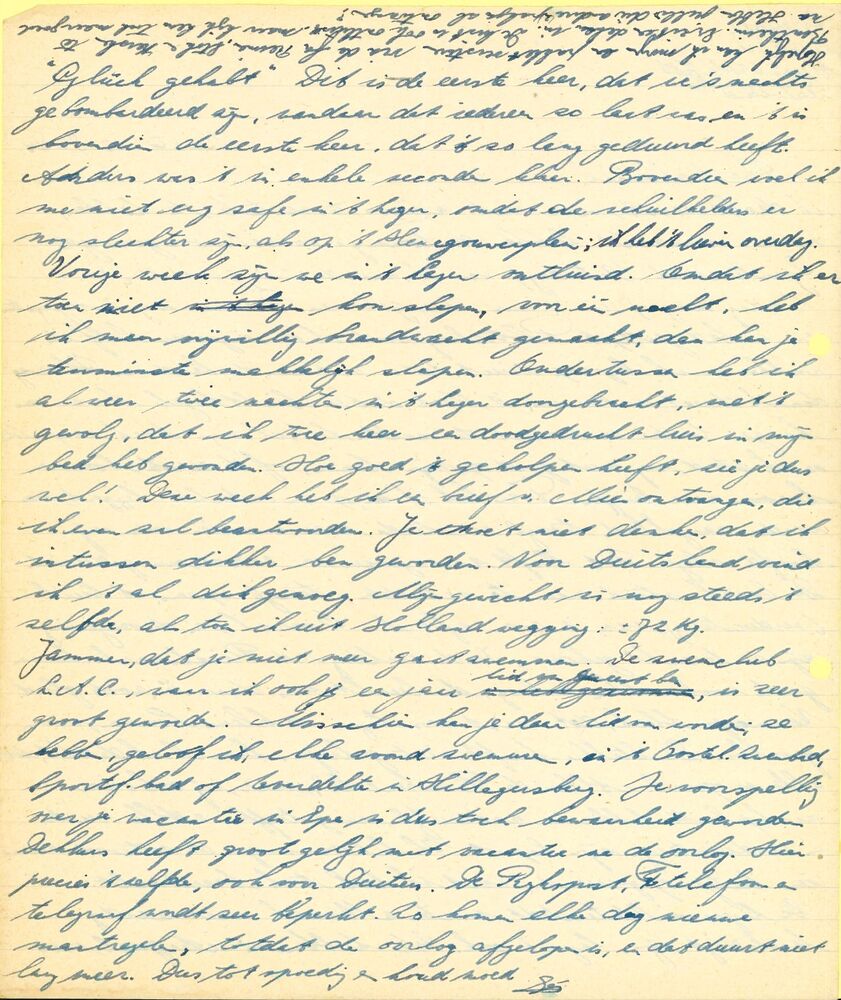 "Glück gehabt" Dit is de eerste keer, dat we 's nachts
gebombardeerd zijn, vandaar dat iedereen zo laat was, en 't is
bovendien de eerste keer, dat 't zo lang geduurd heeft.
Anders was 't in enkele seconden klaar. Bovendien voel ik
me niet erg safe in 't lager, omdat de schuilkelders er
nog slechter zijn, als op 't Henegouwerplein; ik heb 't liever overdag.
Vorige week zijn we in 't lager ontluisd. Omdat ik er
toen niet in 't lager kon slapen, voor één nacht, heb
ik maar vrijwillig brandwacht gemaakt, dan kan je
tenminste makkelijk slapen. Ondertussen heb ik
al weer twee nachten in 't lager doorgebracht, met 't
gevolg, dat ik twee keer een doodgedrukte luis in mijn
bed heb gevonden. Hoe goed 't geholpen heeft, zie je dus
wel! Deze week heb ik een brief v. Mien ontvangen, die
ik even zal beantwoorden. Je moet niet denken, dat ik
intussen dikker ben geworden. Voor Duitsland vind
ik 't al dik genoeg. Mijn gewicht is nog steeds 't
zelfde, als toen ik uit Holland wegging: ± 72 Kg.
Jammer, dat je niet meer gaat zwemmen. De zwemclub
L.A.C., waar ik ook een jaar lid van geweest ben, is zeer
groot geworden. Misschien kan je daar lid van worden; ze
hebben, geloof ik, elke avond zwemmen, in 't Oostel. Zwembad,
Sportf. bad of overdekte in Hillegersberg. Je voorspelling
over je vacantie in Epe is dus toch bewaarheid geworden
Dekkers heeft groot gelijk met vacantie na de oorlog. Hier
precies 't zelfde, ook voor Duitsers. De Rijkspost, telefoon en
telegraaf wordt zeer beperkt. Zo komen elke dag nieuwe
maatregelen, totdat de oorlog afgelopen is, en dat duurt niet
lang meer. Dus tot spoedig en houd moed.